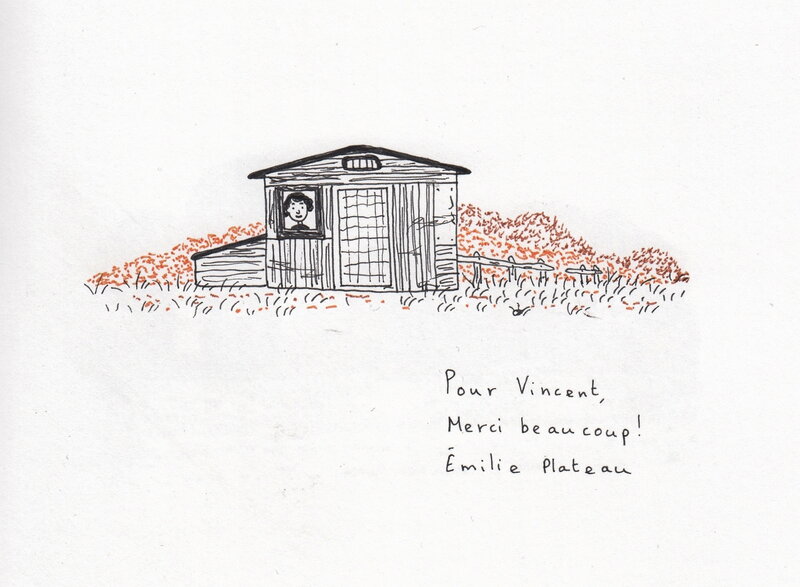 Pour Vincent,
Merci beaucoup!
Émilie Plateau